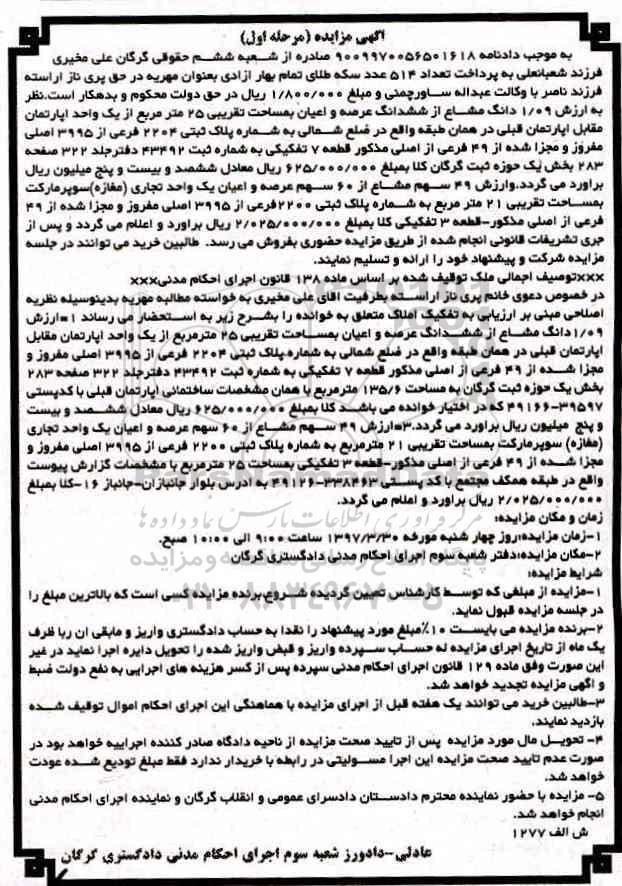 آگهی مزایده (مرحله اول)
به موجب دادنامه ۹۰۰۹۹۷۰۰۵۶۵۰۱۶۱۸ صادره از شعبه ششم حقوقی گرگان علی مخیری
فرزند شعبانعلی به پرداخت تعداد ۵۱۴ عدد سکه طلای تمام بهار آزادی بعنوان مهریه در حق پری ناز آراسته
فرزند ناصر با وکالت عبداله ساورچمنی و مبلغ ۱/۸۰۰/۰۰۰ ریال در حق دولت محکوم و بدهکار است.نظر
به ارزش ۱/۰۹ دانگ مشاع از ششدانگ عرصه و اعیان بمساحت تقریبی ۲۵ متر مربع از یک واحد آپارتمان
مقابل آپارتمان قبلی در همان طبقه واقع در ضلع شمالی به شماره پلاک ثبتی ۲۲۰۴ فرعی از ۳۹۹۵ اصلی
مفروز و مجزا شده از ۴۹ فرعی از اصلی مذکور قطعه ۷ تفکیکی به شماره ثبت ۴۳۴۹۲ دفترجلد ۳۲۲ صفحه
۲۸۳ بخش یک حوزه ثبت گرگان کلا بمبلغ ۶۲۵/۰۰۰/۰۰۰ ریال معادل ششصد و بیست و پنج میلیون ریال
برآورد می گردد.وارزش ۴۹ سهم مشاع از ۶۰ سهم عرصه و اعیان یک واحد تجاری (مغازه)سوپرمارکت
بمساحت تقریبی ۲۱ متر مربع به شماره پلاک ثبتی ۲۲۰۰فرعی از ۳۹۹۵ اصلی مفروز و مجزا شده از ۴۹
فرعی از اصلی مذکور-قطعه ۳ تفکیکی کلا بمبلغ ۲/۰۲۵/۰۰۰/۰۰۰ ریال برآورد و اعلام می گردد و پس از
جری تشریفات قانونی انجام شده از طریق مزایده حضوری بفروش می رسد. طالبین خرید می توانند در جلسه
مزایده شرکت و پیشنهاد خود را ارائه و تسلیم نمایند.
×××توصیف اجمالی ملک توقیف شده بر اساس ماده ۱۳۸ قانون اجرای احکام مدنی×××
در خصوص دعوی خانم پری ناز آراسته بطرفیت آقای علی مخیری به خواسته مطالبه مهریه بدینوسیله نظریه
اصلاحی مبنی بر ارزیابی به تفکیک املاک متعلق به خوانده را بشرح زیر به استحضار می رساند ۱=ارزش
۱/۰۹دانگ مشاع از ششدانگ عرصه و اعیان بمساحت تقریبی ۲۵ مترمربع از یک واحد آپارتمان مقابل
آپارتمان قبلی در همان طبقه واقع در ضلع شمالی به شماره پلاک ثبتی ۲۲۰۴ فرعی از ۳۹۹۵ اصلی مفروز و
مجزا شده از ۴۹ فرعی از اصلی مذکور قطعه ۷ تفکیکی به شماره ثبت ۴۳۴۹۲ دفترجلد ۳۲۲ صفحه ۲۸۳
بخش یک حوزه ثبت گرگان به مساحت ۱۳۵/۶ مترمربع با همان مشخصات ساختمانی آپارتمان قبلی با کدپستی
۳۹۵۹۷-۴۹۱۶۶ که در اختیار خوانده می باشد کلا بمبلغ ۶۲۵/۰۰۰/۰۰۰ ریال معادل ششصد و بیست
و پنج میلیون ریال برآورد می گردد.۳=ارزش ۴۹ سهم مشاع از ۶۰ سهم عرصه و اعیان یک واحد تجاری
(مغازه) سوپرمارکت بمساحت تقریبی ۲۱ مترمربع به شماره پلاک ثبتی ۲۲۰۰ فرعی از ۳۹۹۵ اصلی مفروز و
مجزا شده از ۴۹ فرعی از اصلی مذکور-قطعه ۳ تفکیکی بمساحت ۲۵ مترمربع با مشخصات گزارش پیوست
واقع در طبقه همکف مجتمع با کد پستی ۳۳۸۴۶۳-۴۹۱۲۶ به آدرس بلوار جانبازان-جانباز ۱۶-کلا بمبلغ
۲/۰۲۵/۰۰۰/۰۰۰ ریال برآورد و اعلام می گردد.
زمان و مکان مزایده:
۱-زمان مزایده:روز چهار شنبه مورخه ۱۳۹۷/۳/۳۰ ساعت ۹:۰۰ الی ۱۰:۰۰ صبح.
۲-مکان مزایده:دفتر شعبه سوم اجرای احکام مدنی دادگستری گرگان
شرایط مزایده:
۱-مزایده از مبلغی که توسط کارشناس تعیین گردیده شروع،برنده مزایده کسی است که بالاترین مبلغ را
در جلسه مزایده قبول نماید.
۲-برنده مزایده می بایست ۱۰٪مبلغ مورد پیشنهاد را نقدا به حساب دادگستری واریز و مابقی آن ربا ظرف
یک ماه از تاریخ اجرای مزایده له حساب سپرده واریز و قبض واریز شده را تحویل دایره اجرا نماید در غیر
این صورت وفق ماده ۱۲۹ قانون اجرای احکام مدنی سپرده پس از کسر هزینه های اجرایی به نفع دولت ضبط
و آگهی مزایده تجدید خواهد شد.
۳-طالبین خرید می توانند یک هفته قبل از اجرای مزایده با هماهنگی این اجرای احکام اموال توقیف شده
بازدید نمایند.
۴- تحویل مال مورد مزایده پس از تایید صحت مزایده از ناحیه دادگاه صادر کننده اجراییه خواهد بود در
صورت عدم تایید صحت مزایده این اجرا مسولیتی در رابطه با خریدار ندارد فقط مبلغ تودیع شده عودت
خواهد شد.
۵- مزایده با حضور نماینده محترم دادستان دادسرای عمومی و انقلاب گرگان و نماینده اجرای احکام مدنی
انجام خواهد شد.
ش الف ۱۲۷۷
عادلی-دادورز شعبه سوم اجرای احکام مدنی دادگستری گرگان